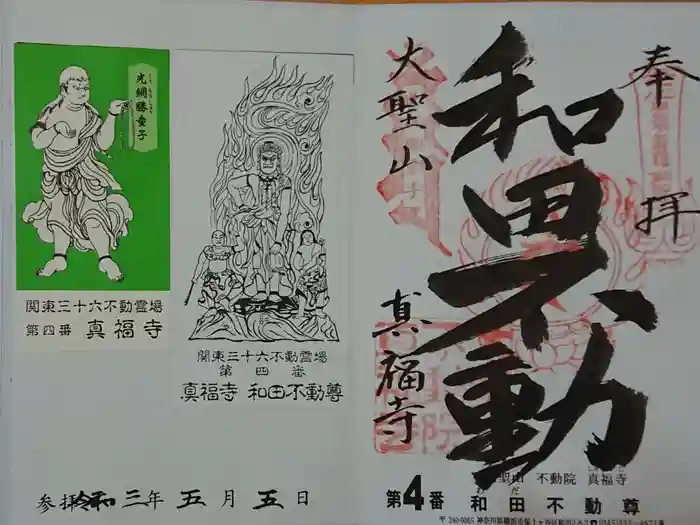 奉拝
和田不動
大聖山
真福寺
第4番
聖山 不動院 真福寺
わだ
和田不動尊
光網勝童子
関東三十六不動霊場
第四番 真福寺
関東三十六不動霊場
第四番
真福寺 和田不動尊
参拝令和三年五月五日